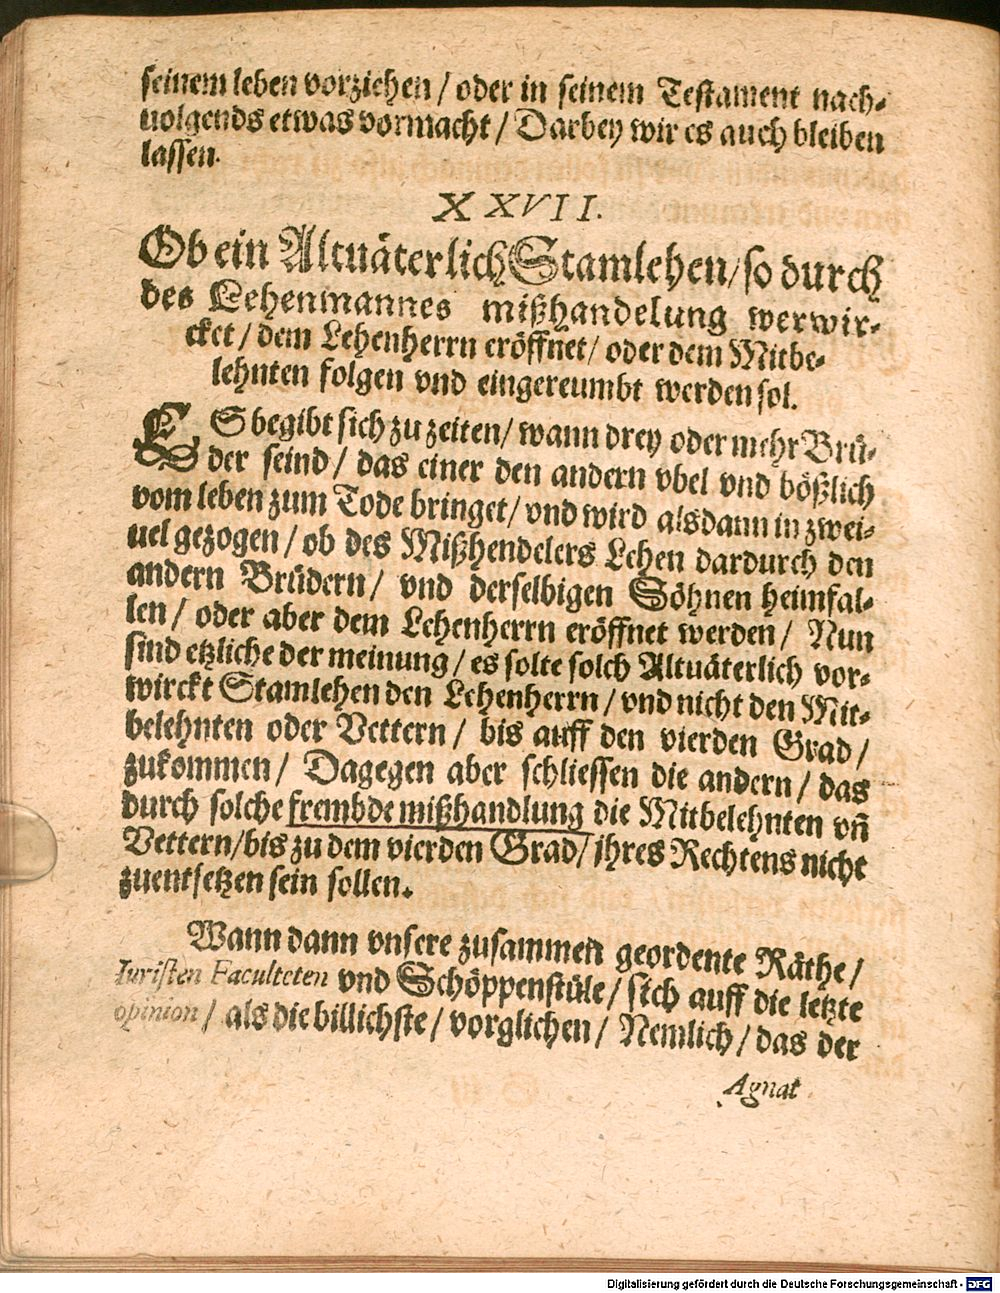 seinem leben vorziehen / oder in seinem Testament nach-
uolgends etwas vormacht / Darbey wir es auch bleiben
lassen.
XXVII.
Ob ein Altuäterlich Stamlehen / so durch
des Lehenmannes mißhandelung werwir-
cket / dem Lehenherrn eröffnet / oder dem Mitbe-
lehnten folgen vnd eingereumbt werden sol.
ES begibt sich zu zeiten / wann drey oder mehr Brü-
der seind / das einer den andern vbel vnd bößlich
vom leben zum Tode bringet / vnd wird alsdann in zwei-
uel gezogen / ob des Mißhendelers Lehen dardurch den
andern Brüdern / vnd derselbigen Söhnen heimfal-
len / oder aber dem Lehenherrn eröffnet werden / Nun
sind etzliche der meinung / es solte solch Altuäterlich vor-
wirckt Stamlehen den Lehenherrn / vnd nicht den Mit-
belehnten oder Vettern / bis auff den vierden Grad /
zukommen / Dagegen aber schliessen die andern / das
durch solche frembde mißhandlung die Mitbelehnten vñ
Vettern / bis zu dem vierden Grad / jhres Rechtens nicht
zuentsetzen sein sollen.
Wann dann vnsere zusammen geordente Räthe /
Iuristen Faculteten vnd Schöppenstüle / sich auff die letzte
opinion / als die billichste / vorglichen / Nemlich / das der
Agnat
Digitalisierung gefördert durch die Deutsche Forschungsgemeinschaft - DFG